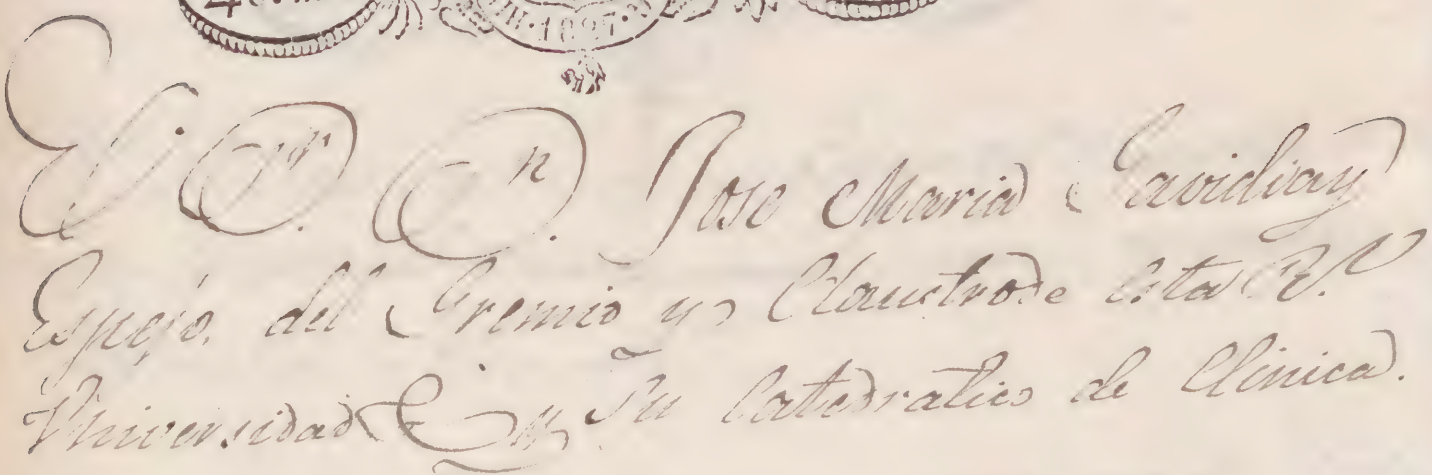 El D.r D.n Jose Maria Gavidia y
Espejo, del Gremio y Claustro de esta R.l
Universidad y su Catedratico de Clinica.